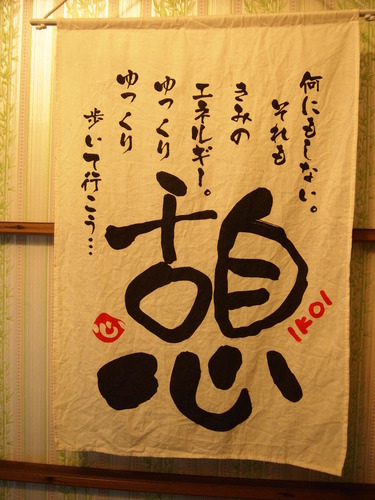 何にもしない。
それも
きみの
エネルギー。
ゆっくり
ゆっくり
歩いて行こう…
憩
IKOI
心